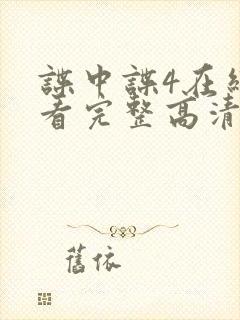 諜中諜4在線
看完整高清
舊依